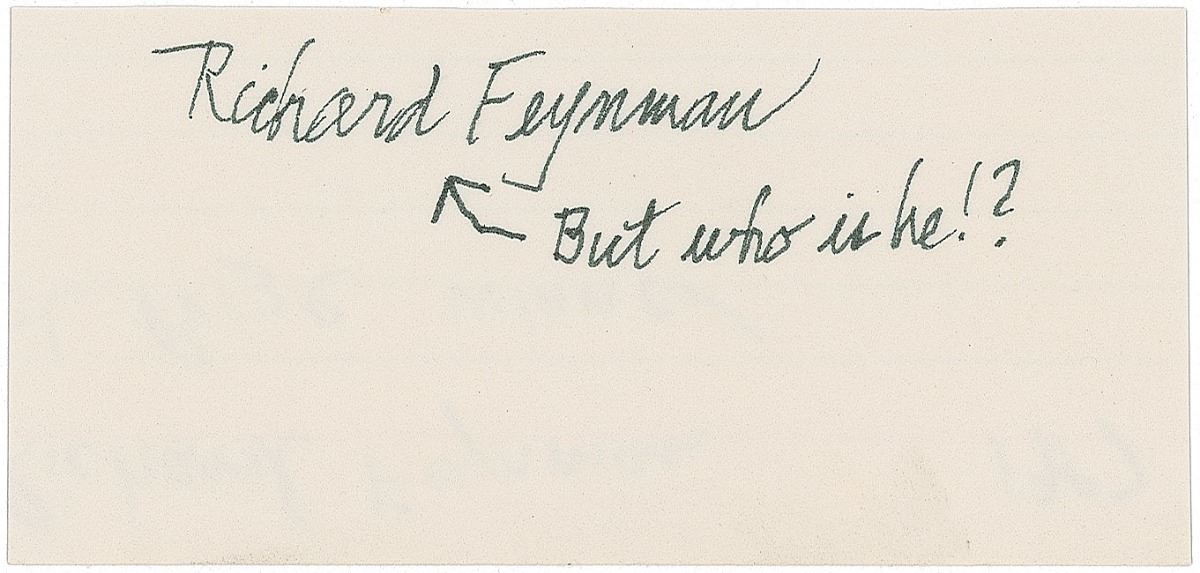 Richard Feynman
But who is he!?